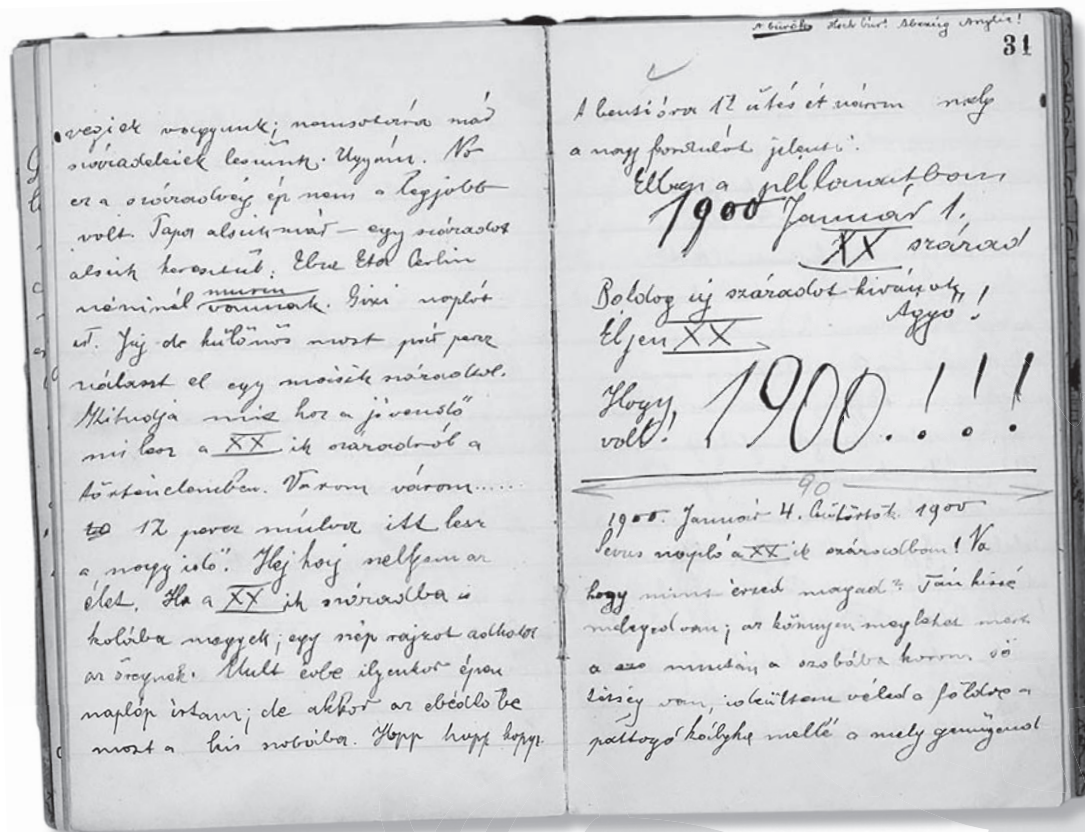 végiek vagyunk; nemsokára már
századeleiek leszünk. Ugyám. No
ez a századvég ép nem a legjobb
volt. Papa alszik már – egy századot
alszik keresztül. Ebre Eta Carlin
néninél vannak. Gizi naplót
ír. Juj de különös most pár perc
választ el egy másik századtol.
Ki tudja mit hoz a jövendő
mi lesz a XX ik századról a
történelemben. Várom várom.....
12 percz múlva itt lesz
a nagy idő. Hej haj
élet. Ha a XX ik századba is
kolába megyek; egy szép rajzot adhatok
az öregnek. Mult évbe ilyenkor épen
naplóp irtam; de akkor az ebédlőbe
most a kis szobába. Hopp hopp hopp.
A búrok Hoch búr! Abzúg Anglia!
31
A bentióra 12 ütés ét várom mely
a nagy fordulót jelenti.
Ebben a pillanatban
1900 Január 1.
XX század
Boldog új századot kivánok
Agyő!
Éljen XX
Hogy
volt!
1900.!!!
90
1900. Január 4. Csütörtök. 1900
Sevus napló a XX ik században! Na
hogy mint érzed magad? Tán kissé
meleged van; az könnyen meglehet mert
a miután a szobába korom sö
tétség van, kiültem véled a földre a
pattogó kályha mellé a mely